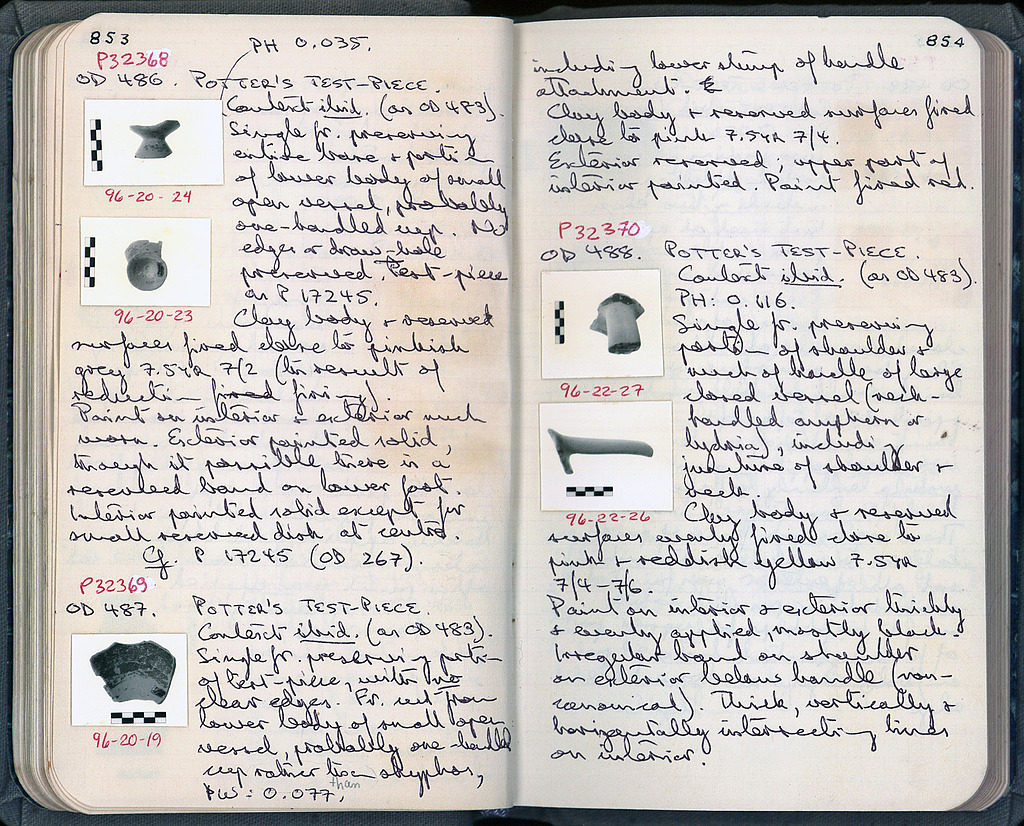 853
P32368
PH 0.035.
OD 486. POTTER'S TEST-PIECE.
Context ibid. (as OD 483).
Single fr. preserving
entire base & portion
of lower body of small
open vessel, probably
one-handled cup. No
edges or draw-hole
preserved. Test-piece
as P 17245.
96-20-24
96-20-23
Clay body & reserved
surfaces fired close to pinkish
grey 7.5YR 7/2 (the result of
reduction fired firing).
Paint on interior & exterior much
worn. Exterior painted solid,
though it possible there is a
reserved band on lower foot.
Interior painted solid except for
small reserved disk at centre.
Cf. P 17245 (OD 267).
P32369
OD 487. POTTER'S TEST-PIECE.
Context ibid. (as OD 483).
Single fr. preserving portion
of test-piece, with no
clear edges. Fr. cut from
lower body of small open
vessel, probably one-handled
cup rather than skyphos,
than
PW: 0.077,
96-20-19
854
including lower stump of handle
attachment.
Clay body & reserved surfaces fired
close to pink 7.5YR 7/4.
Exterior reserved; upper part of
interior painted. Paint fired red.
P32370
OD 488. POTTER'S TEST-PIECE.
Context ibid. (as OD 483).
PH: 0.116.
Single fr. preserving
portion of shoulder &
much of handle of large
closed vessel (neck-
handled amphora or
hydria), including
juncture of shoulder &
neck.
96-22-27
96-22-26
Clay body & reserved
surfaces evenly fired close to
pink & reddish yellow 7.5YR
7/4-7/6.
Paint on interior & exterior thickly
& evenly applied, mostly black.
Irregular band on shoulder
on exterior below handle (non-
canonical). Thick, vertically &
horizontally intersecting lines
on interior.